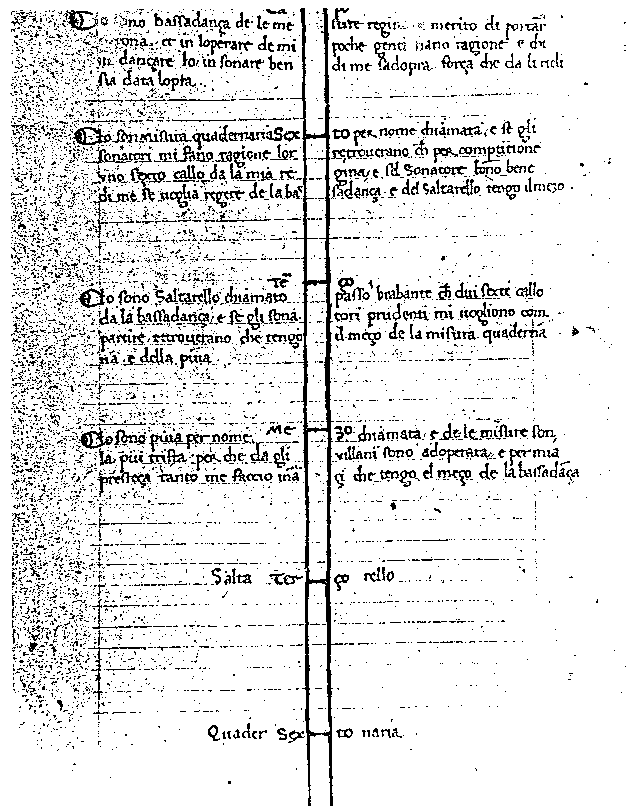 Io sono bassadança de le me sure regin e merito di portar
corona. et in loperare de mi poche genti hano ragione e chi
in dançare lo in sonare ben di me sadopra força che da li cieli
sia data lopra.
Io son misura quadernaria Sex to per nome chiamata, e se gli
sonatori mi fano ragione lor retroverano ch per compititione
uno sexto callo da la mia re gina, e sel Sonatore bono bene
di me se voglia regere de la bas sadança e del Saltarello tengo il mezo
Ter ço
Io sono Saltarello chiamato passo brabante ch dui sexte callo
da la bassadança, e se gli sona tori prudenti mi vogliono com
partire retroverano che tengo il meço de la misura quaderna
ria e della piva
Me zo
Io sono piva per nome chiamata e de le misure son
la piu trista per che da gli villani sono adoperata, e per mia
presteça tanto me faccio inã çi che tengo el meço de la bassadança
Salta Ter ço rello
Quader Sex to naria